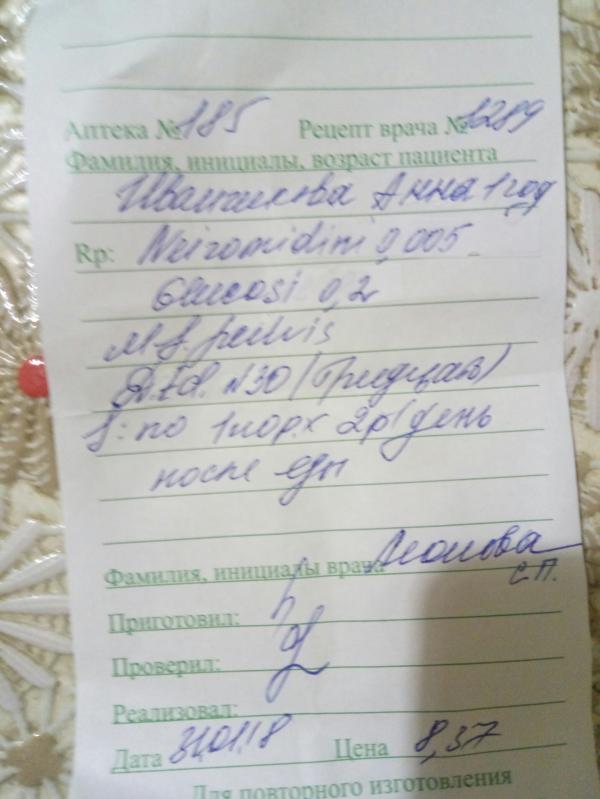 Аптека № 185 Рецепт врача № 1289
Фамилия, инициалы, возраст пациента
Анна 1 год
Rp: Neiromidini 0,005
Glucosi 0,2
M.f. pulvis
D.t.d. N 30 (Тридцать)
S: по 1 пор. х 2 р/день
после еды
Фамилия, инициалы врача
С.П.
Приготовил:
Проверил:
Реализовал:
Дата 31.01.18 Цена 8,37
Для повторного изготовления